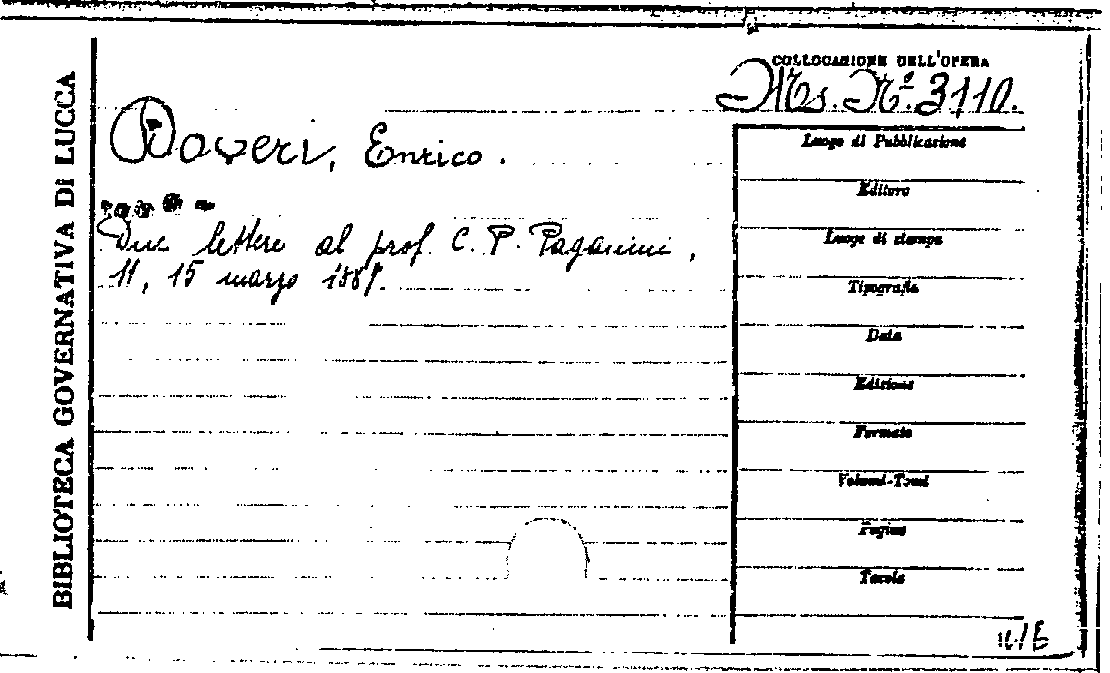 BIBLIOTECA GOVERNATIVA DI LUCCA
COLLOCAZIONE DELL'OPERA
Ms. Nº. 3110.
Doveri, Enrico.
Due lettere al prof. C. P. Paganini,
11, 15 marzo
Luogo di Pubblicazione
Editore
Luogo di stampa
Tipografia
Data
Edizione
Formato
Volumi-Tomi
Pagine
Tavole